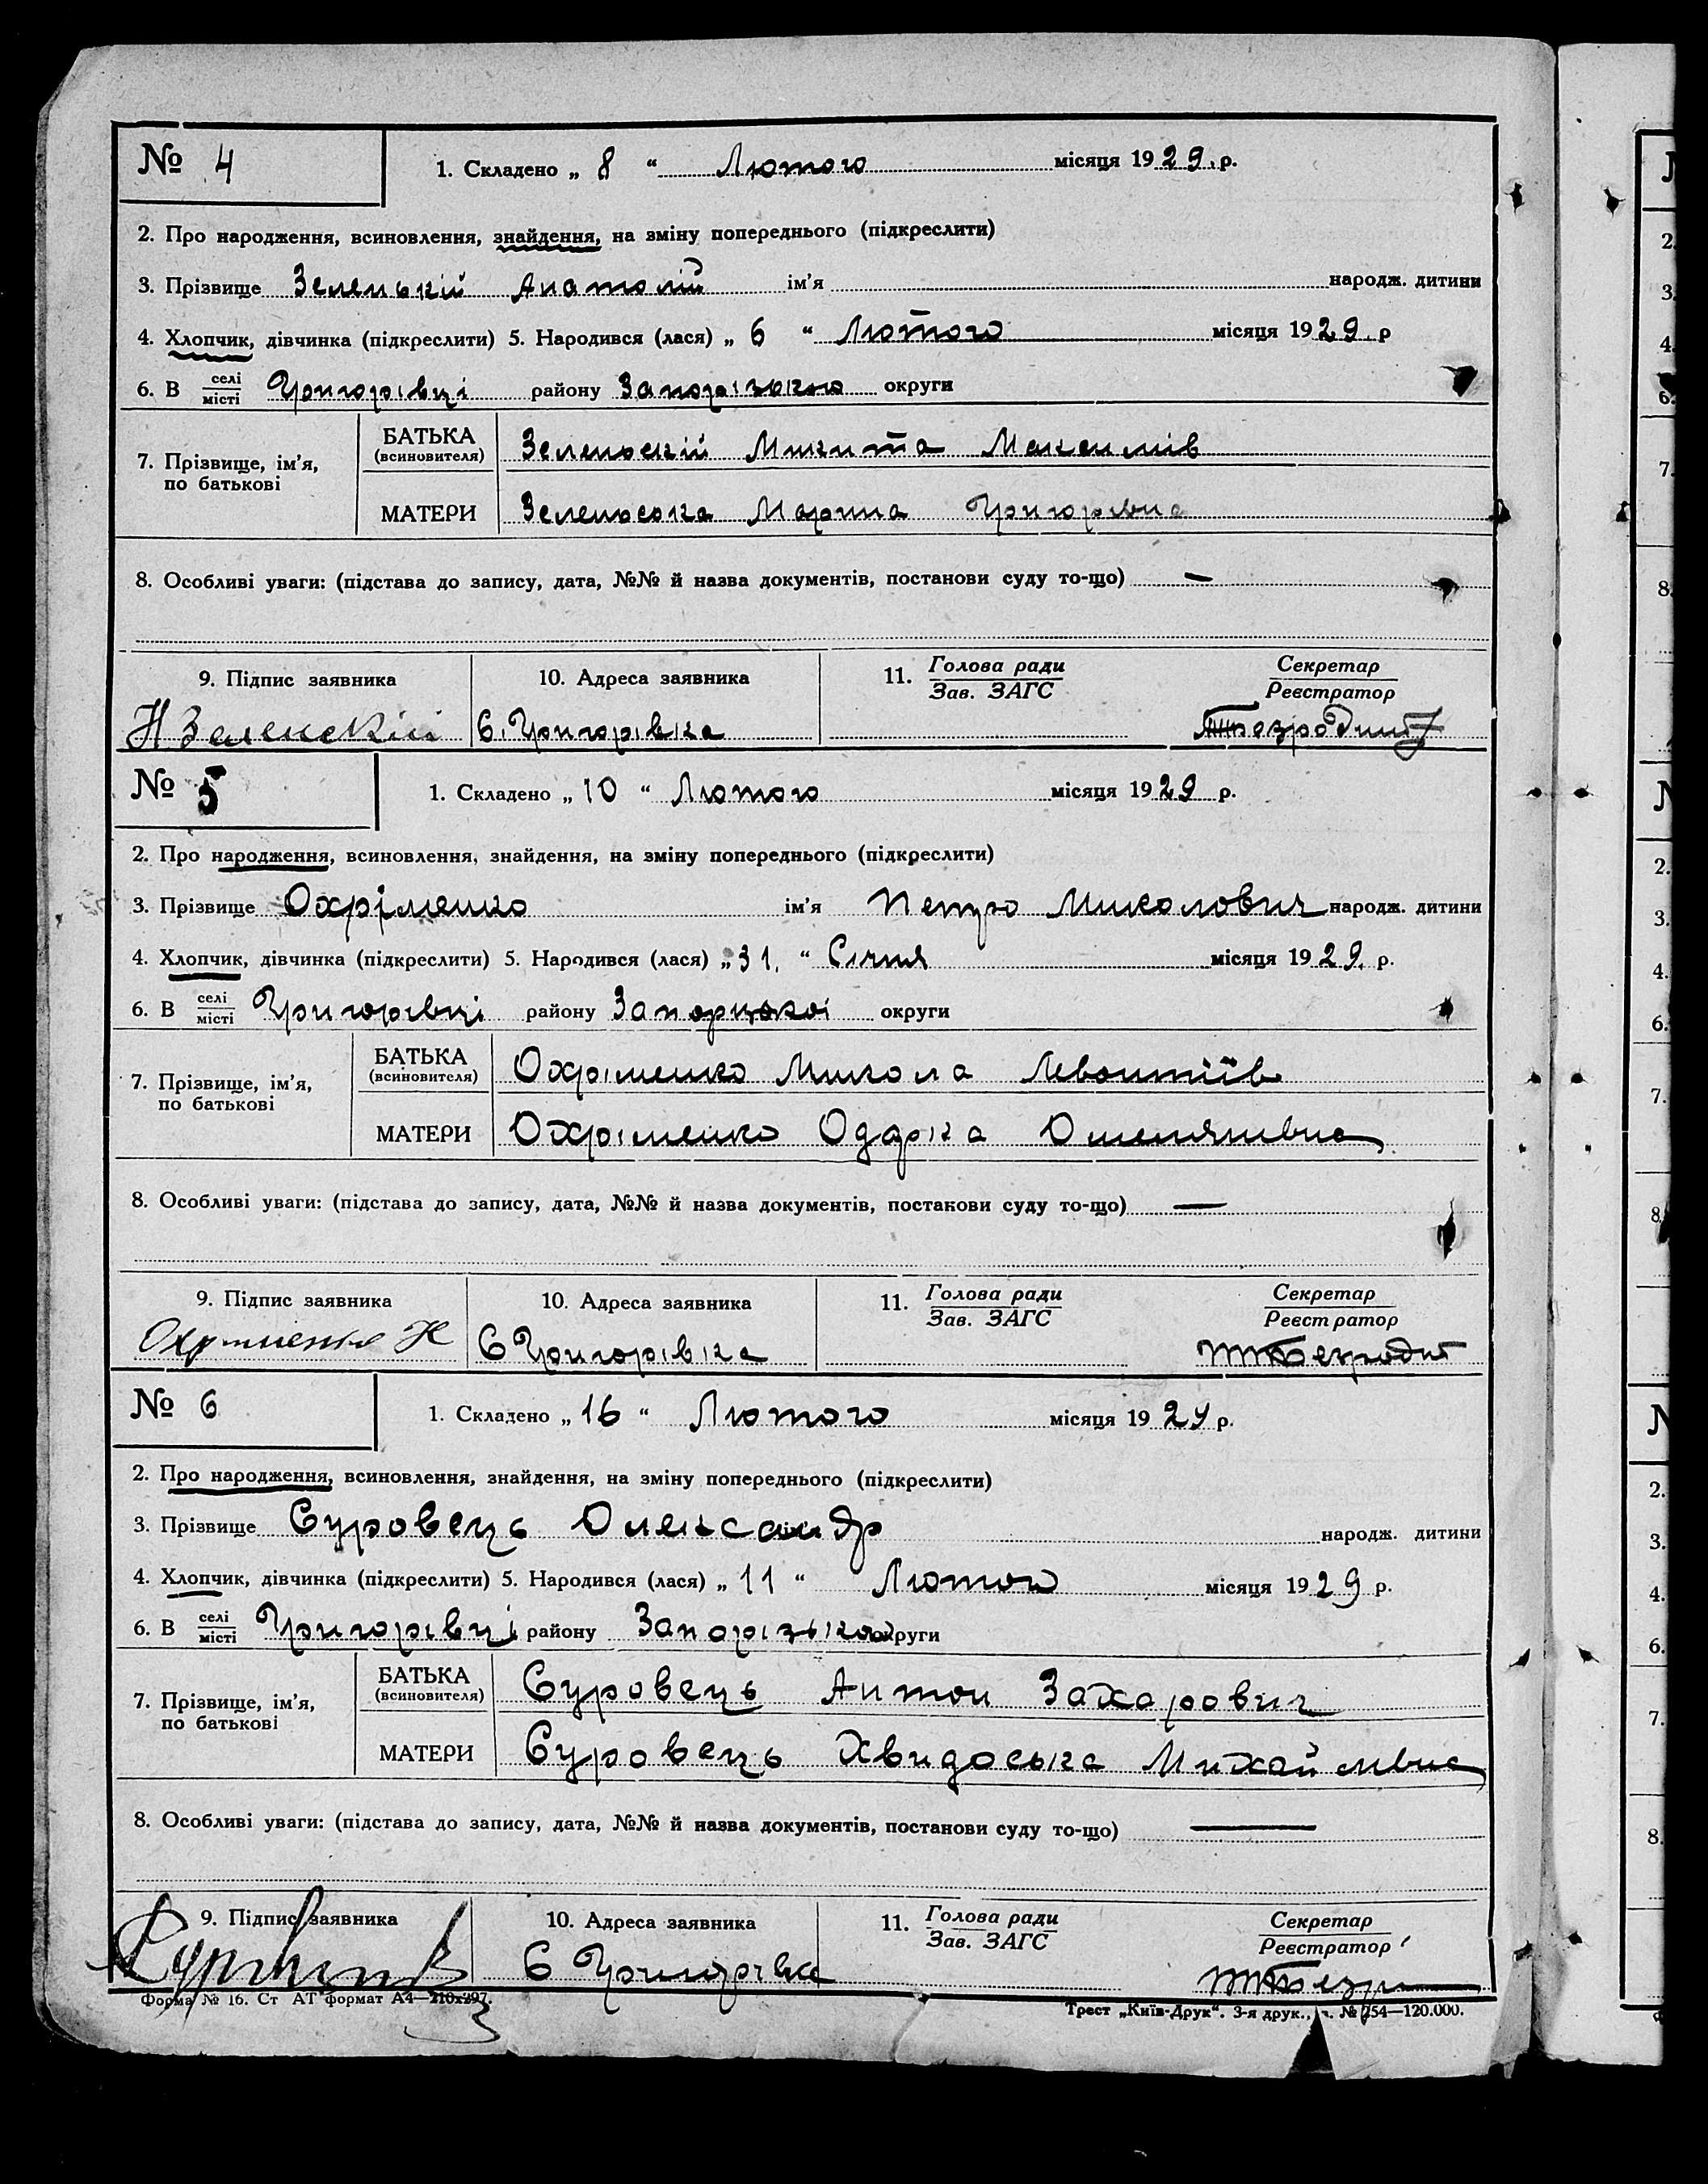 № 4 1. Складено „ 8 “ Лютого місяця 1929. р.
2. Про народження, всиновлення, знайдення, на зміну попереднього (підкреслити)
3. Прізвище Зеленький Анатолій ім'я народж. дитини
4. Хлопчик, дівчинка (підкреслити) 5. Народився (лася) „ 6 “ Лютого місяця 1929. р
6. В селі/місті Григорівці району Запорізького округи
7. Прізвище, ім'я, по батькові
БАТЬКА (всиновителя) Зеленьскій Микита Максимів
МАТЕРИ Зеленьська Марина Григорівна
8. Особливі уваги: (підстава до запису, дата, №№ й назва документів, постанови суду то-що) —
9. Підпис заявника 10. Адреса заявника 11. Голова ради/Зав. ЗАГС Секретар/Реєстратор
Н Зеленскій С. Григорівка
№ 5 1. Складено „ 10 “ Лютого місяця 1929 р.
2. Про народження, всиновлення, знайдення, на зміну попереднього (підкреслити)
3. Прізвище Охріменко ім'я Петро Миколович народж. дитини
4. Хлопчик, дівчинка (підкреслити) 5. Народився (лася) „ 31. “ Січня місяця 1929. р.
6. В селі/місті Григорівці району округи
7. Прізвище, ім'я, по батькові
БАТЬКА (всиновителя) Охріменко Микола Левонтіїв
МАТЕРИ Охріменко Одарка Омелянівна
8. Особливі уваги: (підстава до запису, дата, №№ й назва документів, постанови суду то-що) —
9. Підпис заявника 10. Адреса заявника 11. Голова ради/Зав. ЗАГС Секретар/Реєстратор
С Григорівка
№ 6 1. Складено „ 16 “ Лютого місяця 1929 р.
2. Про народження, всиновлення, знайдення, на зміну попереднього (підкреслити)
3. Прізвище Суровець Олександр народж. дитини
4. Хлопчик, дівчинка (підкреслити) 5. Народився (лася) „ 11 “ Лютого місяця 1929 р.
6. В селі/місті Григорівці району Запорізької округи
7. Прізвище, ім'я, по батькові
БАТЬКА (всиновителя) Суровець Антон Захарович
МАТЕРИ Суровець Хвидоська Михайлівна
8. Особливі уваги: (підстава до запису, дата, №№ й назва документів, постанови суду то-що) —
9. Підпис заявника 10. Адреса заявника 11. Голова ради/Зав. ЗАГС Секретар/Реєстратор
С Григорівка
Форма № 16. Ст АТ формат А4—210x297.
Трест „Київ-Друк“. 3-я друк., № 254—120.000.